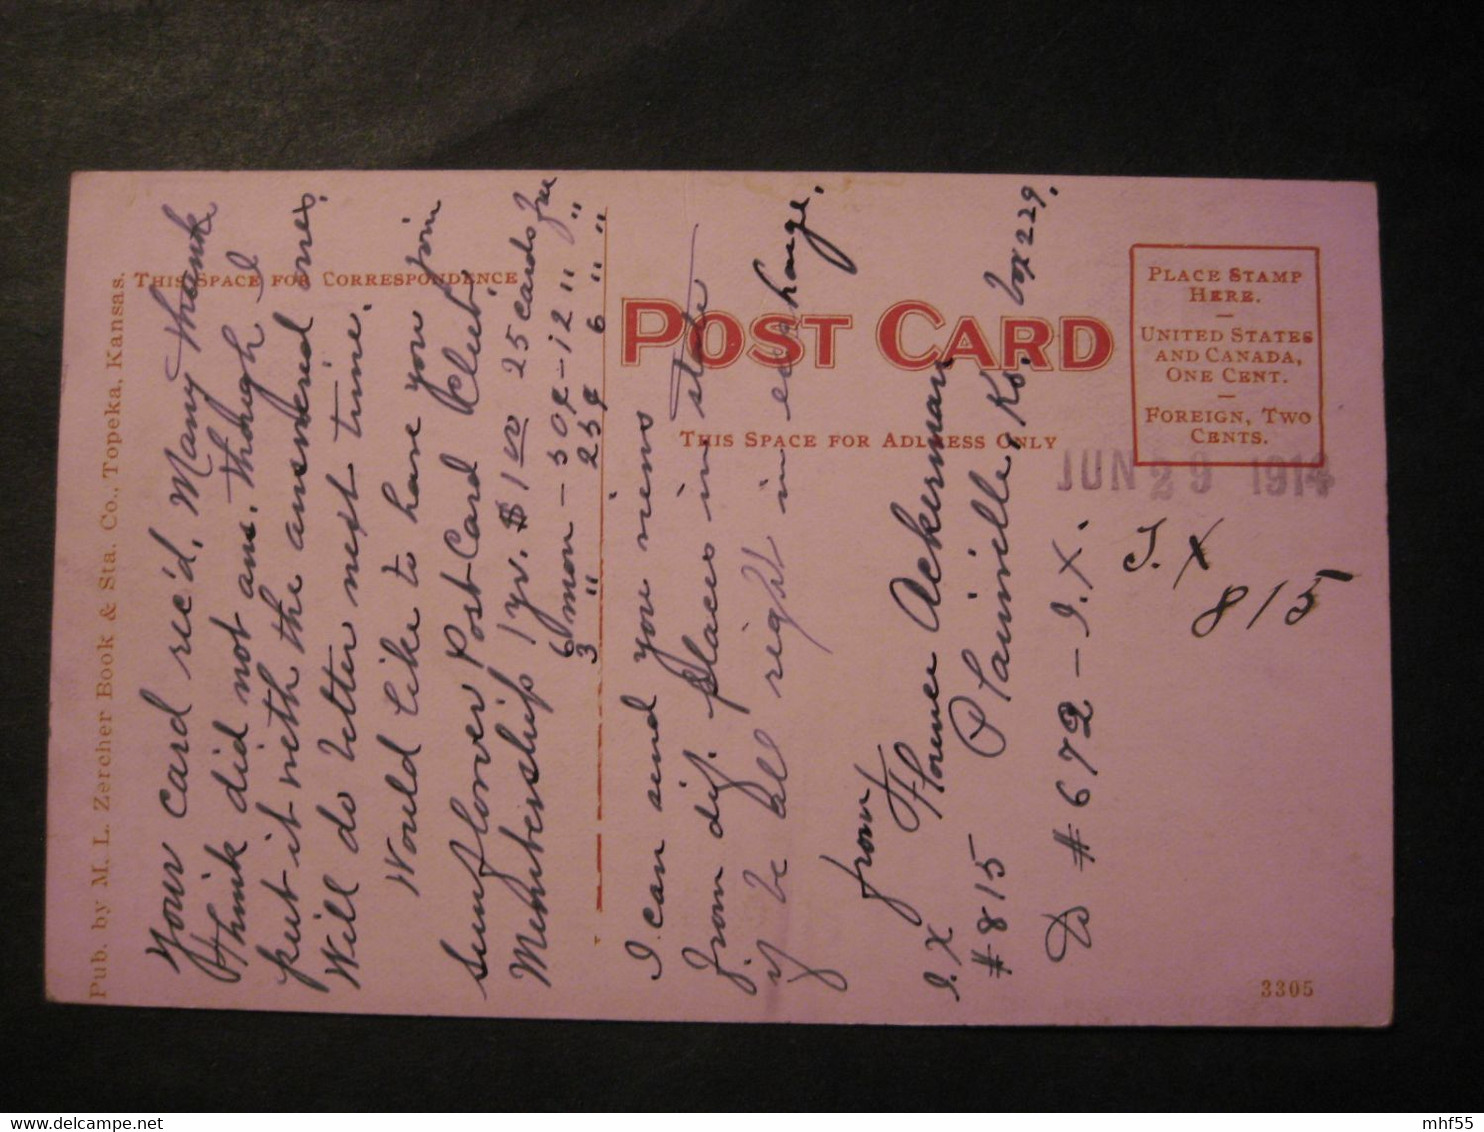 Your card rec'd. Many thanks
Think did not ans. though I
put it with the answered ones.
Will do better next time.
Would like to have you join
Sunflower Post Card Club.
Membership 1 yr. $1 00 25 cards free
6 mon - 50¢ - 12 " "
3 " 25¢ 6 " "
I can send you views
from dif. places in state
if be all right in exchange.
from
I. X Florence Ackerman
#815 Plainville, Ks. Box 229.
To #672 - I. X.
I. X
815
POST CARD
THIS SPACE FOR CORRESPONDENCE
THIS SPACE FOR ADDRESS ONLY
PLACE STAMP
HERE.
UNITED STATES
AND CANADA,
ONE CENT.
FOREIGN, TWO
CENTS.
JUN 29 1914
Pub. by M. L. Zercher Book & Sta. Co., Topeka, Kansas.
3305
delcampe.net
mhf55